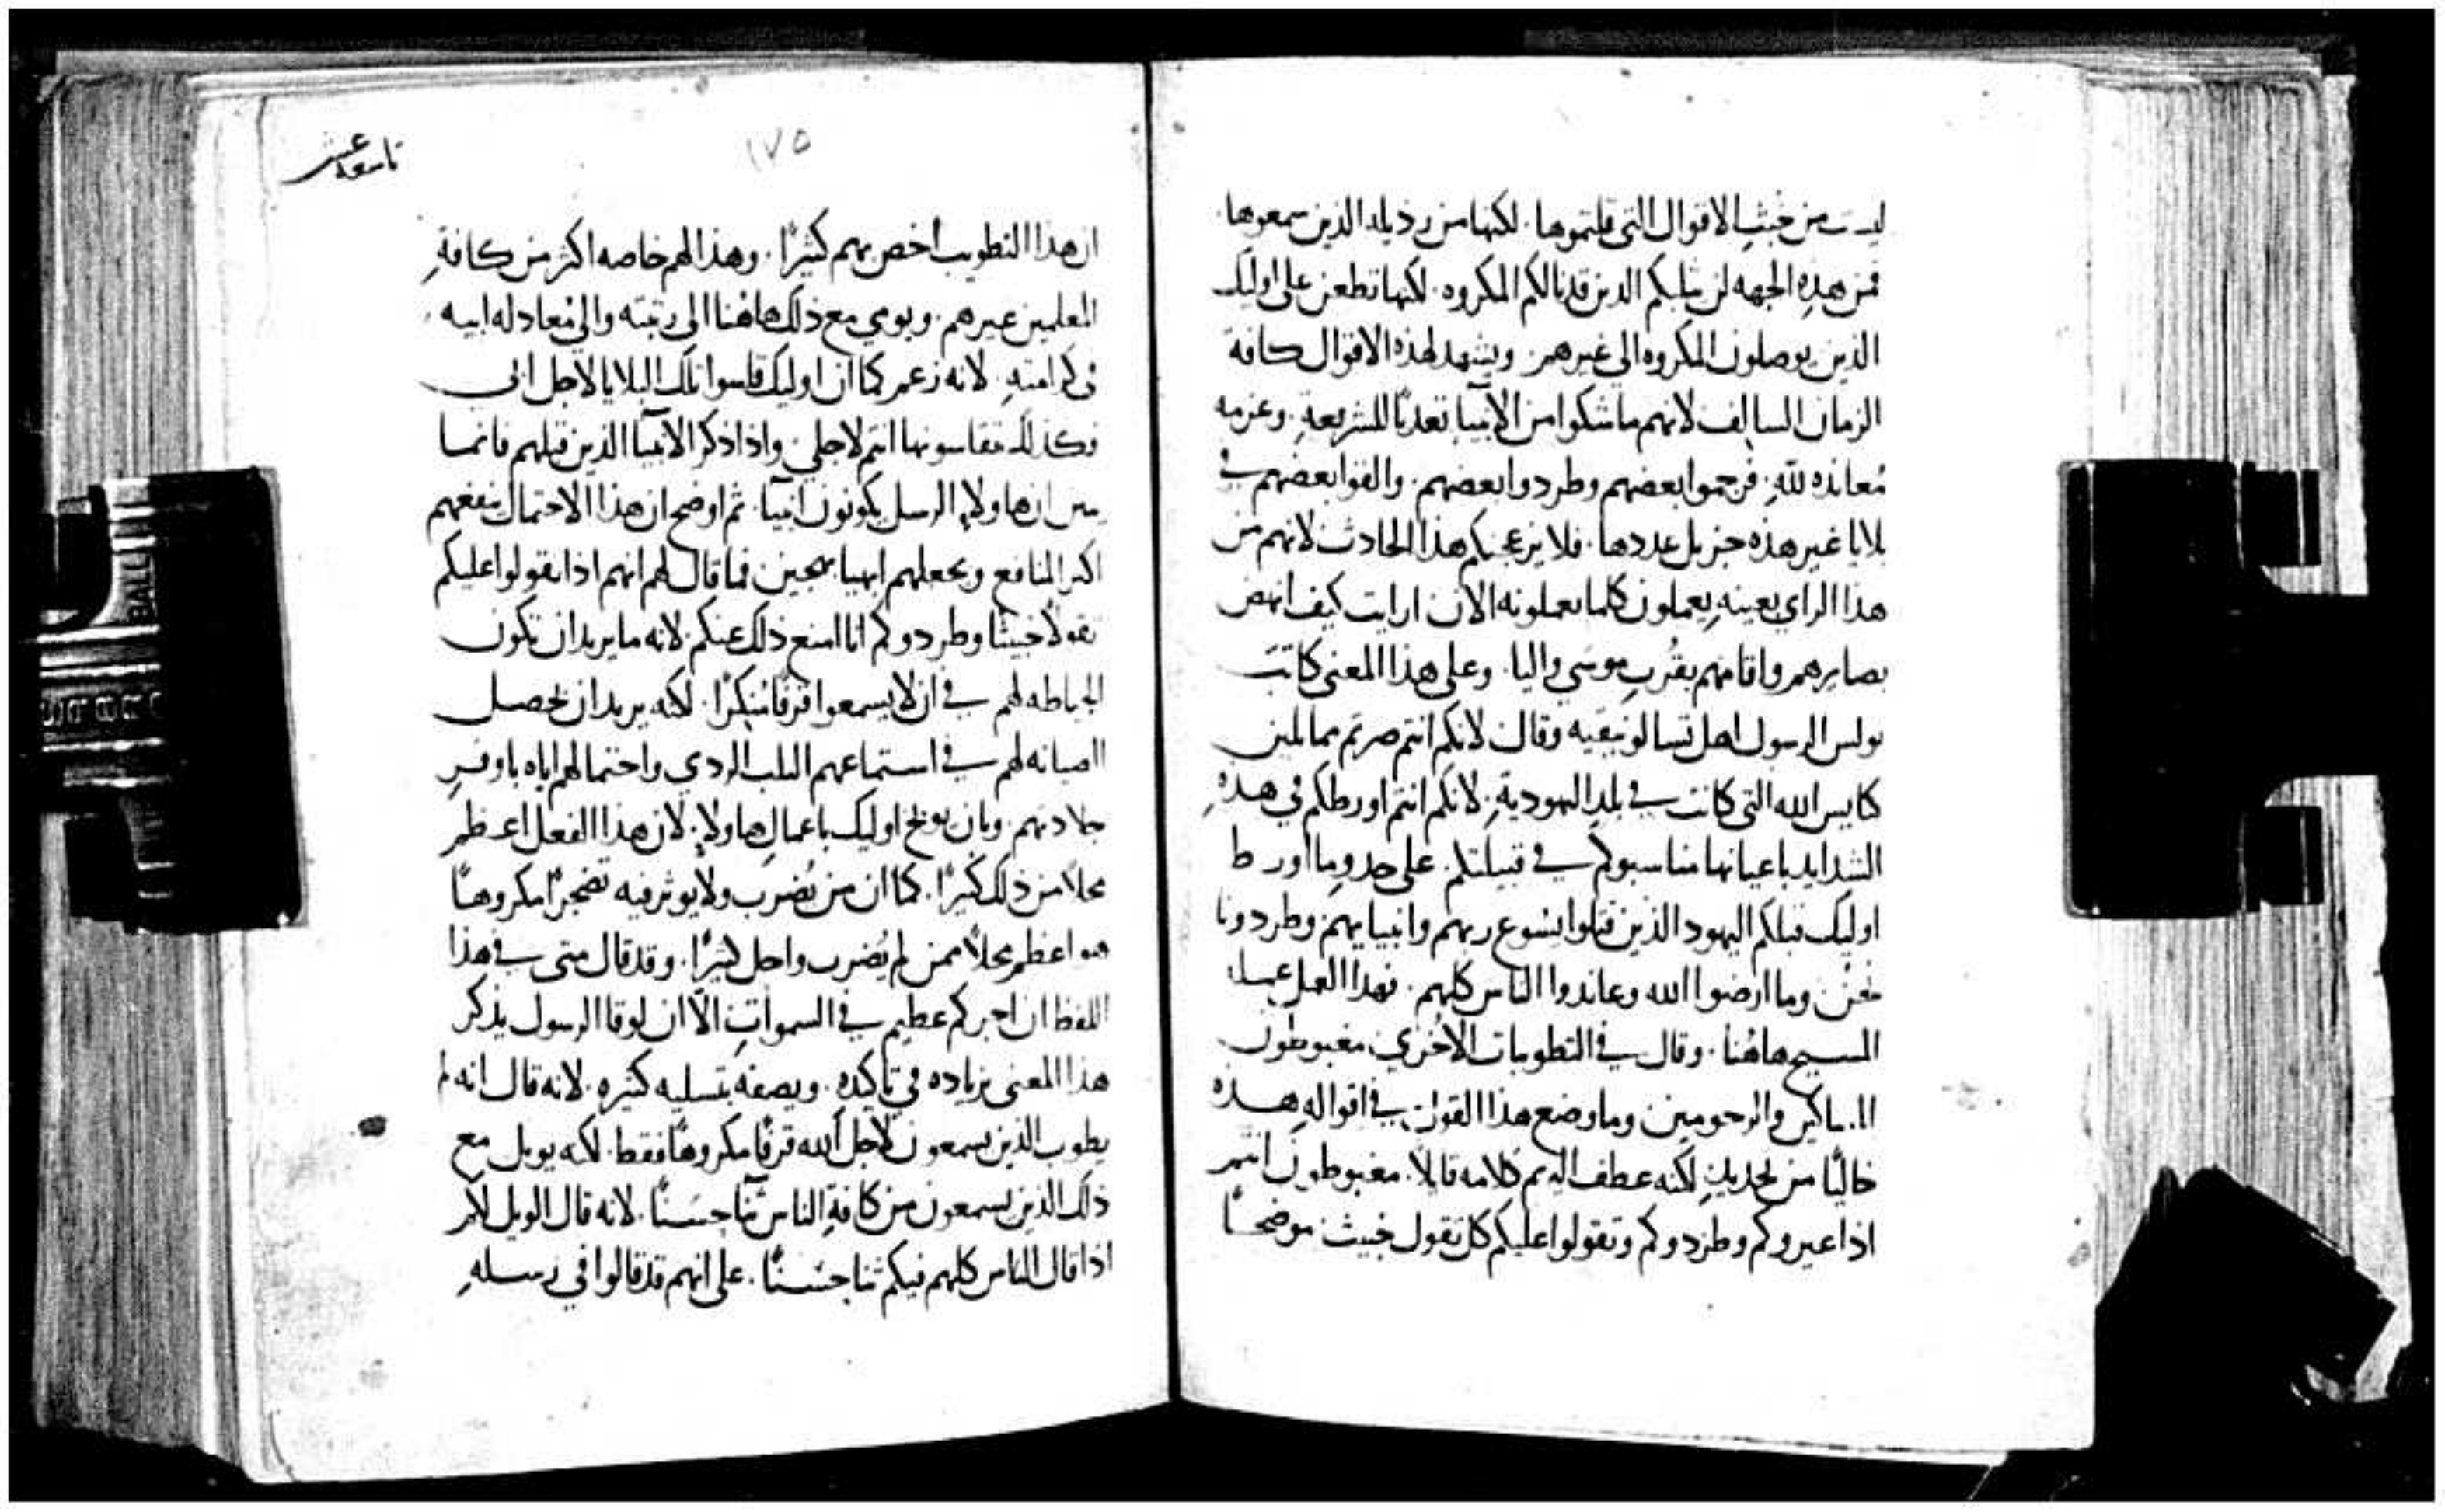 ليست من خبث الاقوال التي قلتموها. لكنها من رذيله الذين سمعوها.
فمن هذهِ الجهه لن يثلبكم الدين قد نالكم المكروه. لكنها تطعن على اوليك
الذين يوصلون المكروه الى غيرهم. ويشهد لهذه الاقوال كافة
الزمان السالف لانهم ما شكوا من الانبيا تعديًا للشريعةِ. وعزمه
مُعانده للّهِ. فرجموا بعضهم وطردوا بعضهم. والقوا بعضهم في
بلايا غير هذه جزيل عددها. فلا يزعجنكم هذا الحادث لانهم من
هذا الراي بعينهِ يعملون كلما يعملونه الان ارايت كيف انهض
بصايرهم واقامهم بقُربِ موسى واليا. وعلى هذا المعنى كاتبَ
بولس الرسول اهل تسالونيقيه وقال لانكم انتم صرتم مماثلين
كنايس الله التي كانت في بلدِ اليهوديةِ. لانكم انتم اورطكم في هذهِ
الشدايد باعيانها مناسبوكم في قبيلتكم. على حدوما اورط
اوليك قبلكم اليهود الذين قتلوا يسوع ربهم وانبيايهم وطردونا
نحنُ وما ارضوا الله وعاندوا الناس كلهم. فهذا العمل عمله
المسيح هاهُنا. وقال في التطوبيات الاخري مغبوطون
المساكين والرحومين وما وضع هذا القول في اقوالهِ هذه
خاليًا من تحديدٍ لكنه عطف اليهم كلامه قايلًا. مغبوطون انتم
اذا عيروكم وطردوكم وتقولوا عليكم كل تقول خبيث موضحًا
١٧٥
تاسعه عشر
ان هذا التطويب اخص بهم كثيرًا. وهذا لهم خاصه اكثر من كافةِ
المعلمين غيرهم. ويومي مع ذلك هاهُنا الى رتبته والى مُعادله ابيه
في كرامتهِ. لانه زعم كما ان اوليك قاسوا تلك البلايا لاجل ابي
فكذلك تقاسونها انتم لاجلي. واذا ذكر الانبيا الذين قبلهم فانما
يبين ان هاولاءِ الرسل يكونون انبيا. ثم اوضح ان هذا الاحتمال ينفعهم
اكبر المنافع ويجعلهم ابهيا بهجين فما قال لهم انهم اذا تقولوا عليكم
تقولًا خبيثًا وطردوكم انا امنع ذلك عنكم. لانه ما يريد ان تكون
الحياطه لهم في ان لا يسمعوا قرفًا منكرًا. لكنه يريد ان تحصل
الصيانه لهم في استماعهم الثلب الردي واحتمالهم اياه باوفرِ
جلادتهم. وبان يوبخ اوليك باعمالِ هاولاءِ. لان هذا الفعل اعظم
محلًا من ذلك كثيرًا. كما ان من يُضرب ولا يوثر فيه تضجرًا مكروهًا
هو اعظم محلًا ممن لم يُضرب واجل كثيرًا. وقد قال متى في هذا
اللفظ ان اجركم عظيم في السمواتِ الّا ان لوقا الرسول يذكر
هذا المعنى بزياده في تاكيدهِ. ويصفه بتسليه كثيرهِ. لانه قال انه لم
يطوب الذين يسمعون لاجل الله قرفًا مكروهًا فقط. لكنه يويل مع
ذلك الذين يسمعون من كافةِ الناس ثنًا حسنًا. لانه قال الويل لكم
اذا قال الناس كلهم فيكم ثنا حسنًا. على انهم قد قالوا في رسلهِ